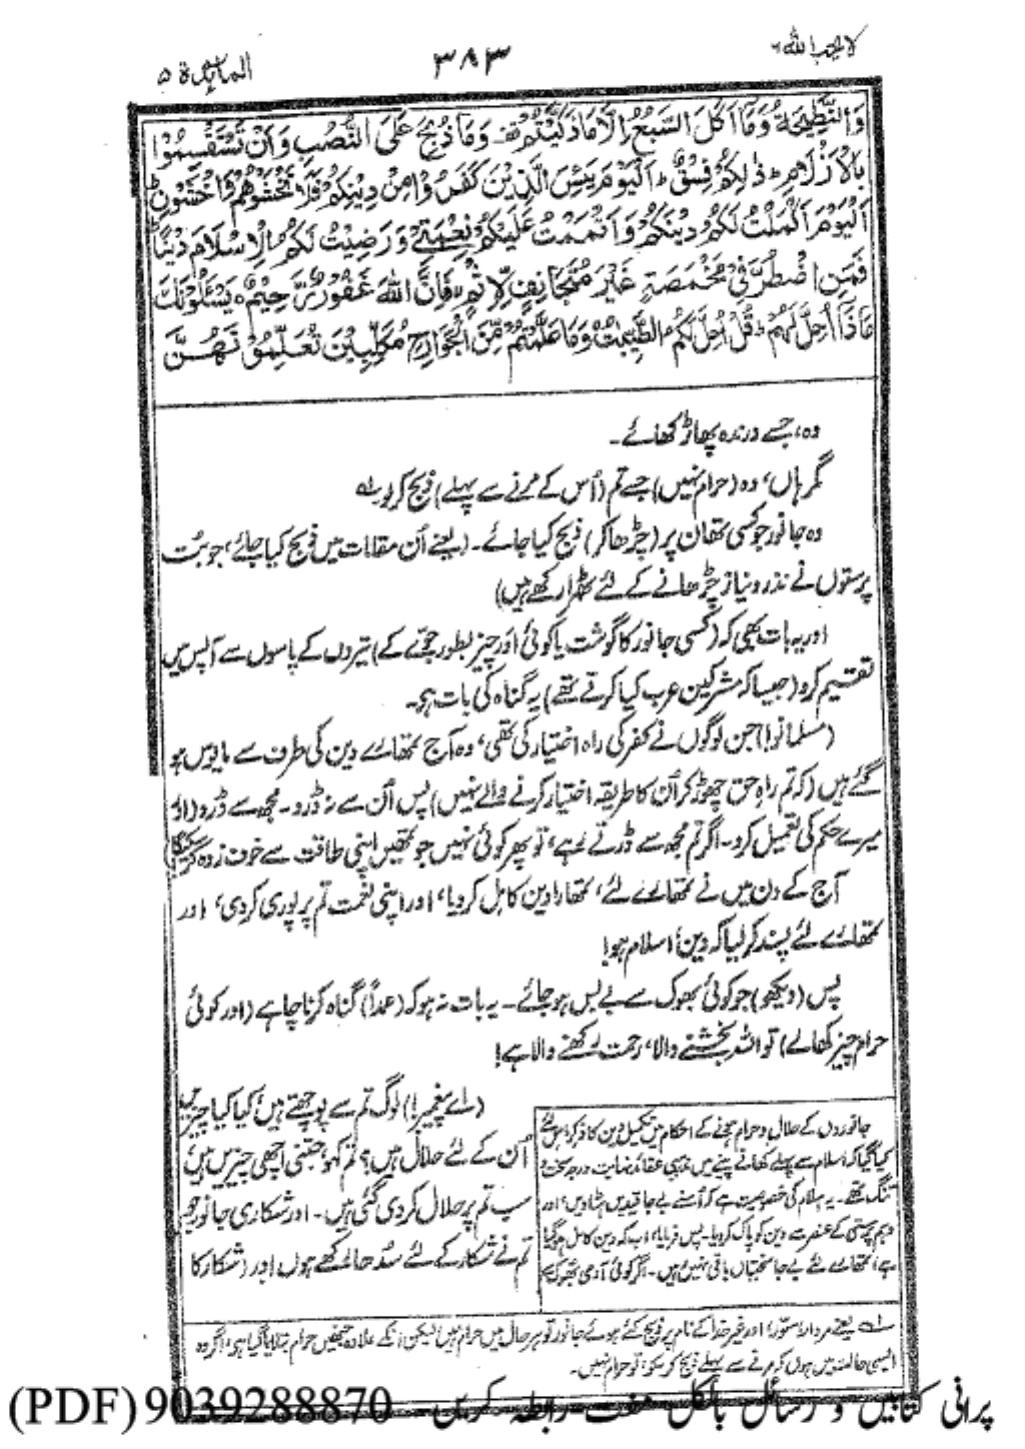 لا یحب اللہ ۶
۳۸۳
المائدۃ ۵
وَالنَّطِیْحَۃُ وَمَاۤ اَکَلَ السَّبُعُ اِلَّا مَا ذَکَّیْتُمْ وَمَا ذُبِحَ عَلَی النُّصُبِ وَاَنْ تَسْتَقْسِمُوْا
بِالْاَزْلَامِ ؕ ذٰلِکُمْ فِسْقٌ ؕ اَلْیَوْمَ یَئِسَ الَّذِیْنَ کَفَرُوْا مِنْ دِیْنِکُمْ فَلَا تَخْشَوْھُمْ وَاخْشَوْنِ ؕ
اَلْیَوْمَ اَکْمَلْتُ لَکُمْ دِیْنَکُمْ وَاَتْمَمْتُ عَلَیْکُمْ نِعْمَتِیْ وَرَضِیْتُ لَکُمُ الْاِسْلَامَ دِیْنًا ؕ
فَمَنِ اضْطُرَّ فِیْ مَخْمَصَۃٍ غَیْرَ مُتَجَانِفٍ لِّاِثْمٍ ۙ فَاِنَّ اللّٰہَ غَفُوْرٌ رَّحِیْمٌ ۝ یَسْئَلُوْنَکَ
مَاذَاۤ اُحِلَّ لَھُمْ ؕ قُلْ اُحِلَّ لَکُمُ الطَّیِّبٰتُ وَمَا عَلَّمْتُمْ مِّنَ الْجَوَارِحِ مُکَلِّبِیْنَ تُعَلِّمُوْنَھُنَّ
وہ، جسے درندہ پھاڑ کھائے۔
مگر ہاں، وہ (حرام نہیں) جسے تم (اُس کے مرنے سے پہلے) ذبح کر لو۔ لہ
وہ جانور جو کسی تھان پر (چڑھا کر) ذبح کیا جائے۔ (یعنے اُن مقامات میں ذبح کیا جائے، جو بُت
پرستوں نے نذر و نیاز چڑھانے کے لئے ٹھہرا رکھے ہیں)
اور یہ بات بھی کہ (کسی جانور کا گوشت یا کوئی اور چیز بطور جوّے کے) تیروں کے پاسوں سے آپس میں
تقسیم کرو (جیسا کہ مشرکین عرب کیا کرتے تھے) یہ گناہ کی بات ہو۔
(مسلمانو!) جن لوگوں نے کفر کی راہ اختیار کی تھی، وہ آج تمھارے دین کی طرف سے مایوس ہو
گئے ہیں (کہ تم راہِ حق چھوڑ کر اُن کا طریقہ اختیار کرنے والے نہیں) پس اُن سے نہ ڈرو۔ مجھ سے ڈرو (اور
میرے حکم کی تعمیل کرو۔ اگر تم مجھ سے ڈرتے رہے، تو پھر کوئی نہیں جو تمھیں اپنی طاقت سے خوف زدہ کر سکیگا)
آج کے دن میں نے تمھارے لئے، تمھارا دین کامل کر دیا، اور اپنی نعمت تم پر پوری کردی، اور
تمھارے لئے پسند کر لیا کہ دین، اسلام ہو!
پس (دیکھو) جو کوئی بھوک سے بے بس ہو جائے۔ یہ بات نہ ہو کہ (عمداً) گناہ کرنا چاہے (اور کوئی
حرام چیز کھا لے) تو اللہ بخشنے والا، رحمت رکھنے والا ہے!
(اے پیغمبر!) لوگ تم سے پوچھتے ہیں، کیا کیا چیزیں
اُن کے لئے حلال ہیں؟ تم کہو، جتنی اچھی چیزیں ہیں،
سب تم پر حلال کر دی گئی ہیں۔ اور شکاری جانور جو
تم نے شکار کے لئے سُدھا رکھے ہوں، اور (شکار کا
جانوروں کے حلال و حرام ہونے کے احکام میں تکمیل دین کا ذکر اس لئے
کیا گیا کہ اسلام سے پہلے کھانے پینے میں مذہبی عقائد نہایت درجہ سخت و
تنگ تھے۔ یہ اسلام کی خصوصیت ہے کہ اُس نے بے جا قیدیں ہٹا دیں، اور
وہم پرستی کے عنصر سے دین کو پاک کر دیا۔ پس فرمایا، اب کہ دین کامل ہو گیا
ہے، تمھارے لئے بے جا سختیاں باقی نہیں رہیں۔ اگر کوئی آدمی بھوک سے
لہ یعنے مردار، سؤر، اور غیر خدا کے نام پر ذبح کئے ہوئے جانور تو ہر حال میں حرام ہیں لیکن انکے علاوہ جنھیں حرام بتلایا گیا ہو، اگر وہ
ایسی حالت میں ہوں کہ مرنے سے پہلے ذبح کر سکو، تو حرام نہیں۔
پرانی کتابیں و رسائل بالکل مفت رابطہ کریں۔ 9039288870 (PDF)